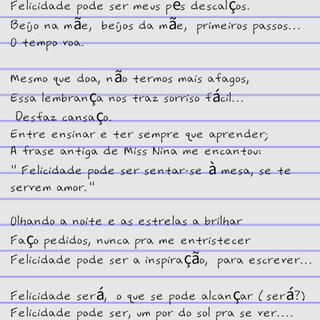 Felicidade pode ser meus pés descalços.
Beijo na mãe, beijos da mãe, primeiros passos...
O tempo voa.
Mesmo que doa, não termos mais afagos,
Essa lembrança nos traz sorriso fácil...
Desfaz cansaço.
Entre ensinar e ter sempre que aprender;
A frase antiga de Miss Nina me encantou:
" Felicidade pode ser sentar-se à mesa, se te
servem amor."
Olhando a noite e as estrelas a brilhar
Faço pedidos, nunca pra me entristecer
Felicidade pode ser a inspiração, para escrever...
Felicidade será, o que se pode alcançar (será?)
Felicidade pode ser, um por do sol pra se ver....